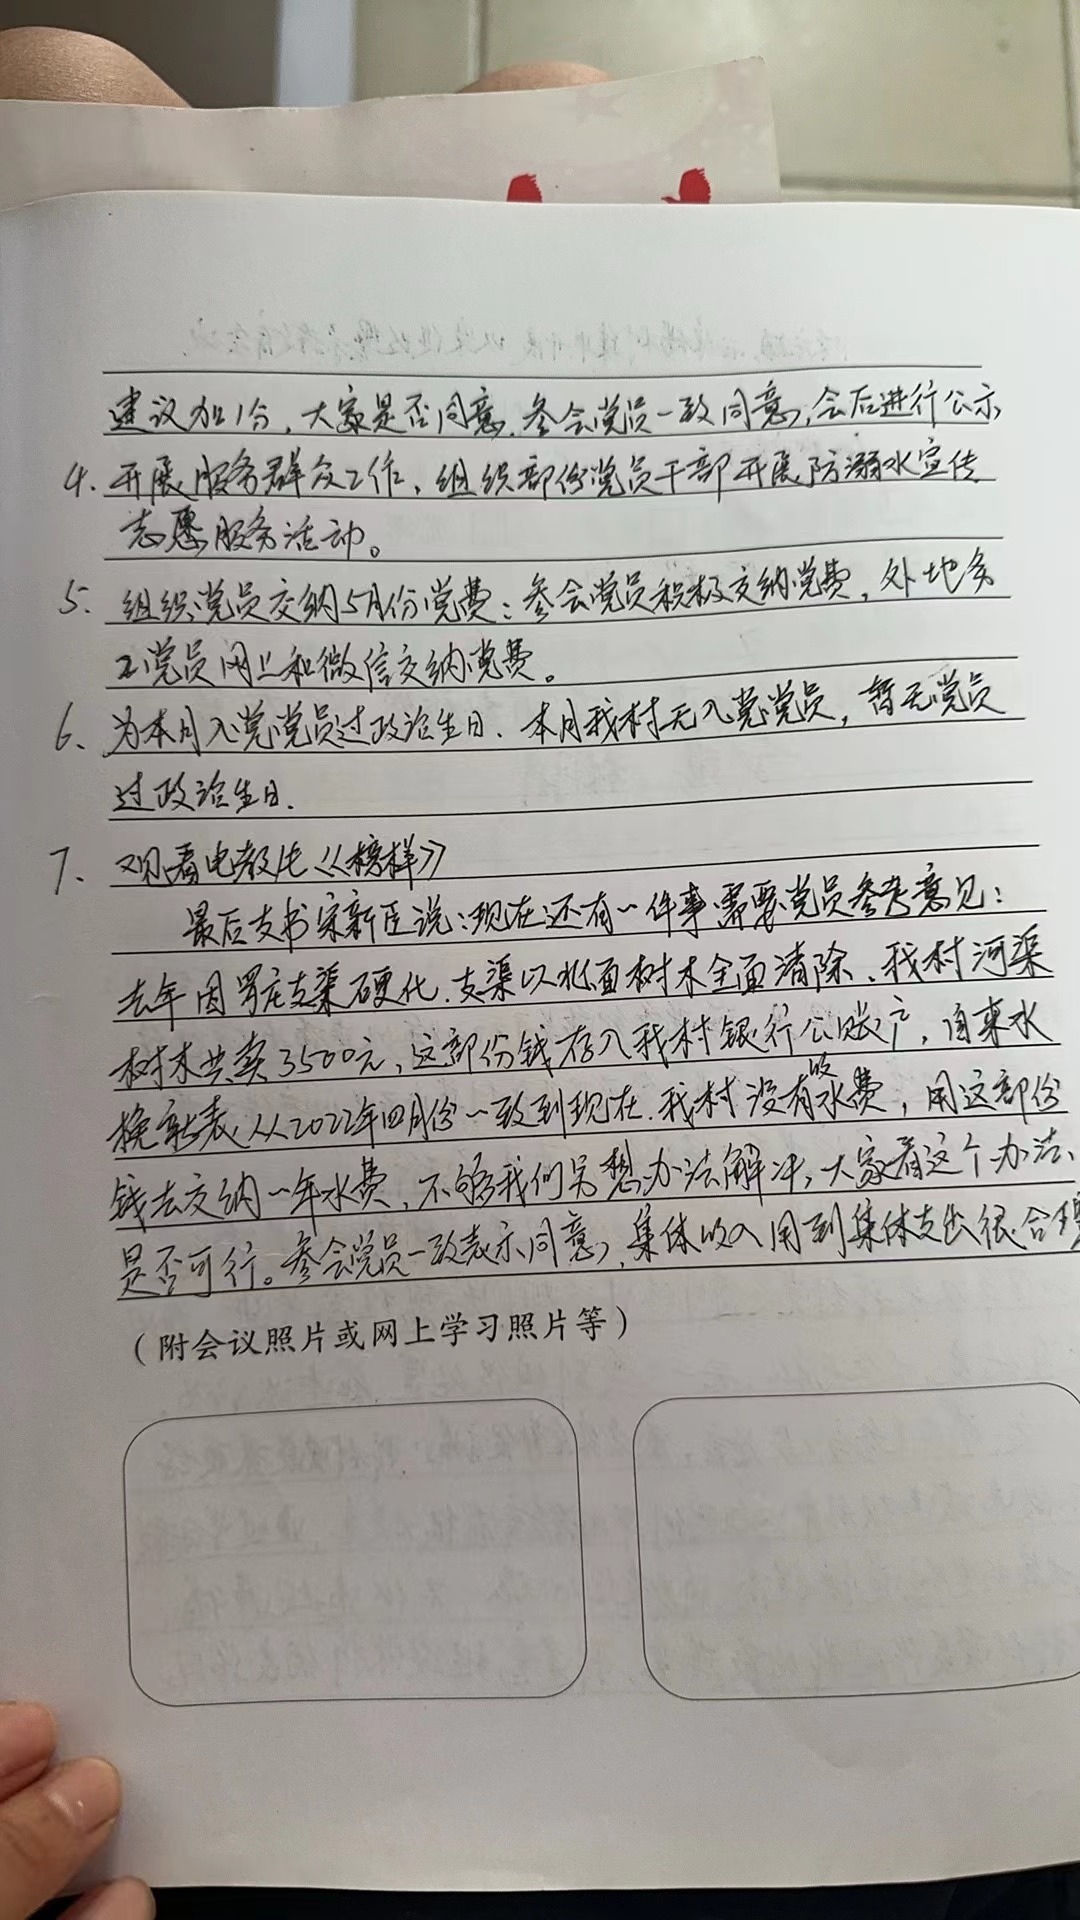 建议加1分，大家是否同意，参会党员一致同意，会后进行公示
4、开展服务群众工作，组织部份党员干部开展防溺水宣传
志愿服务活动。
5、组织党员交纳5月份党费：参会党员积极交纳党费，外地务
工党员网上和微信交纳党费。
6、为本月入党党员过政治生日、本月我村无入党党员，暂无党员
过政治生日.
7、观看电教片《榜样》
最后支书宋新臣说：现在还有一件事需要党员参考意见：
去年因 支渠硬化.支渠以北面树木全面清除、我村河渠
树木共卖3500元，这部份钱存入我村银行公账户，自来水
换新表从2022年四月份一致到现在.我村没有收水费，用这部份
钱去交纳一年水费，不够我们另想办法解决，大家看这个办法、
是否可行。参会党员一致表示同意，集体收入用到集体支出很合理
（附会议照片或网上学习照片等）